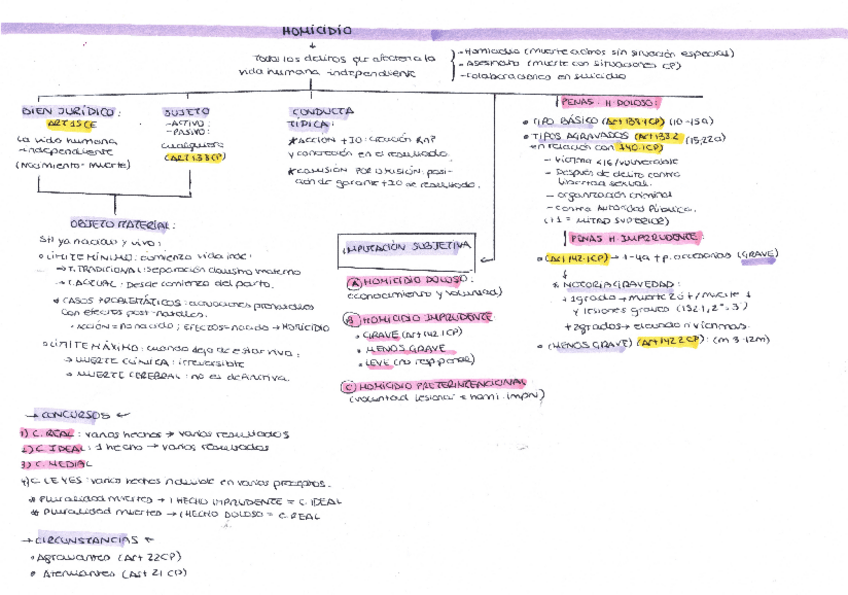 HOMICIDIO
Todos los delitos que afectan a la
vida humana independiente
- Homicidio (muerte a otros sin situación especial)
- Asesinato (muerte con situaciones CP)
- Colaboraciones en suicidio
BIEN JURÍDICO:
ART 15 CE
La vida humana
independiente
(Nacimiento - muerte)
SUJETO
- ACTIVO:
- PASIVO:
cualquiera
(ART 138 CP)
CONDUCTA
TÍPICA:
* ACCIÓN + IO: creación RnP
y concreción en el resultado.
* COMISIÓN POR OMISIÓN: posi-
ción de garante + IO de resultado.
OBJETO MATERIAL:
Ser ya nacido y vivo:
LÍMITE MÍNIMO: comienzo vida
→ T. TRADICIONAL: Separación claustro materno
→ C. ACTUAL: Desde comienzo del parto.
CASOS PROBLEMÁTICOS: actuaciones prenatales
con efectos post-natales.
ACCIÓN = no nacido; EFECTOS = nacido → HOMICIDIO
LÍMITE MÁXIMO: cuando deja de estar vivo:
→ MUERTE CLÍNICA: irreversible
→ MUERTE CEREBRAL: no es definitiva.
IMPUTACIÓN SUBJETIVA
A HOMICIDIO DOLOSO:
(conocimiento y voluntad)
B HOMICIDIO IMPRUDENTE:
GRAVE (Art 142.1 CP)
MENOS GRAVE
LEVE (no resp penal)
C HOMICIDIO PRETERINTENCIONAL
(voluntad lesionar + homi. impru)
PENAS H. DOLOSO:
TIPO BÁSICO (Art 138.1 CP) (10-15a)
TIPOS AGRAVADOS (Art 138.2
en relación con 140.1 CP) (15, 22a)
- Víctima <16/vulnerable
- Después de delito contra
libertad sexual.
- organización criminal
- contra Autoridad Pública.
(+1 = MITAD SUPERIOR)
PENAS H. IMPRUDENTE:
(Art 142.1 CP) → 1-4a + p. accesorias (GRAVE)
* NOTORIA GRAVEDAD:
+ 1 grado → muerte 2 ó +/muerte 1
y lesiones graves (152.1, 2º, 3º)
+ 2 grados → elevado nº víctimas.
(MENOS GRAVE) (Art 142.2 CP): (m 3-12m)
→ CONCURSOS ←
1) C. REAL: varios hechos → varios resultados
2) C. IDEAL: 1 hecho → varios resultados
3) C. MEDIAL
4) C. LEYES: varios hechos subsumible en varios preceptos.
* Pluralidad muertes → 1 HECHO IMPRUDENTE = C. IDEAL
* Pluralidad muertes → 1 HECHO DOLOSO = C. REAL
→ CIRCUNSTANCIAS ←
Agravantes (Art 22 CP)
Atenuantes (Art 21 CP)